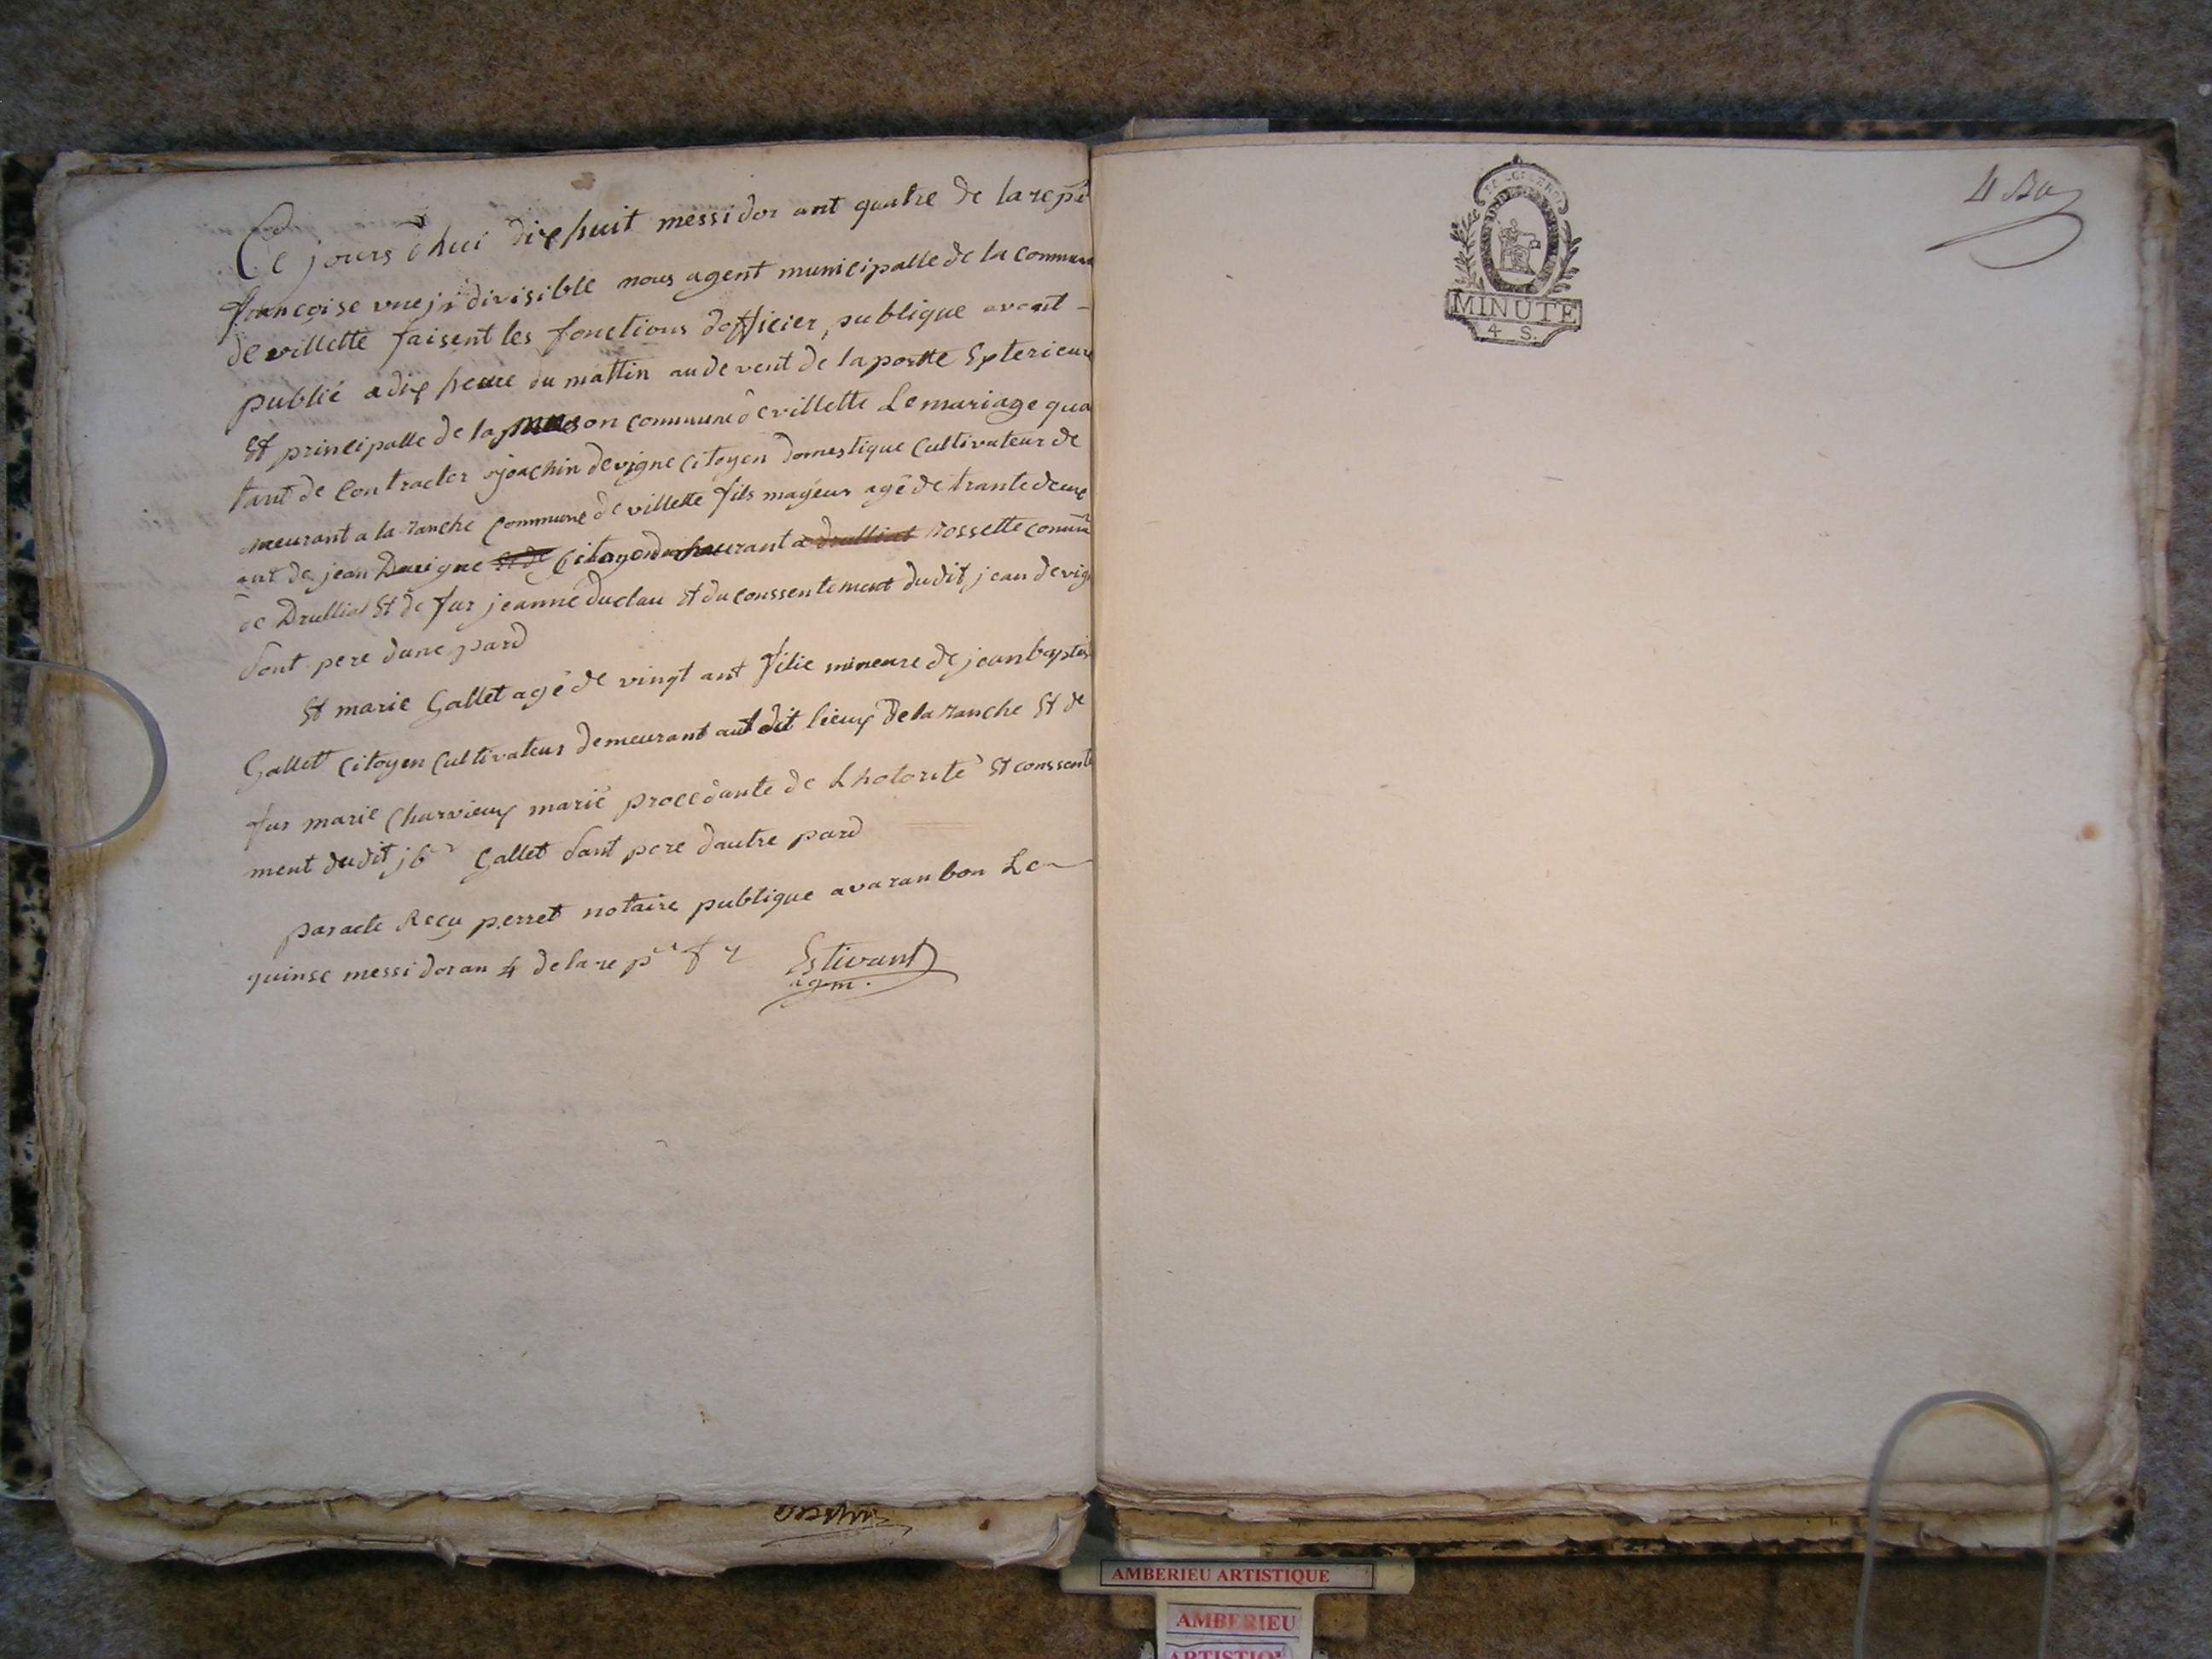 Ce jours d'hui dixhuit messidor ant quatre de la repé
francoise une indivisible nous agent municipalle de la commune
de villette faisent les fonctions dofficier publique avont
publié a dix heure du mattin au devent de la portte Exterieure
Et principalle de la maison commune de villette Le mariage qua
tant de Contracter joachin devigne Citoyen domestique Cultivateur de
meurant a la ranche Commune de villette fils mayeur agé de trante deux
ant de jean Devigne Citoyen demeurant a Rossette comune
de Drulliat Et de fur jeanne duclau Et du conssentement dudit jean devig
sont pere dune pard
Et marie Gallet agé de vingt ant filie mineure de jean baptis
Gallet Citoyen Cultivateur demeurant audit lieux de la ranche Et de
fur marie Charvieux marie procedante de Lhotorité Et conssente
ment dudit jb Gallet sont pere dautre pard
par acte Reçu perret notaire publique a varanbon Le
quinse messidor an 4 de la rep
Estivant
agm.
MINUTE
4 S.
AMBERIEU ARTISTIQUE
AMBERIEU
ARTISTIQUE